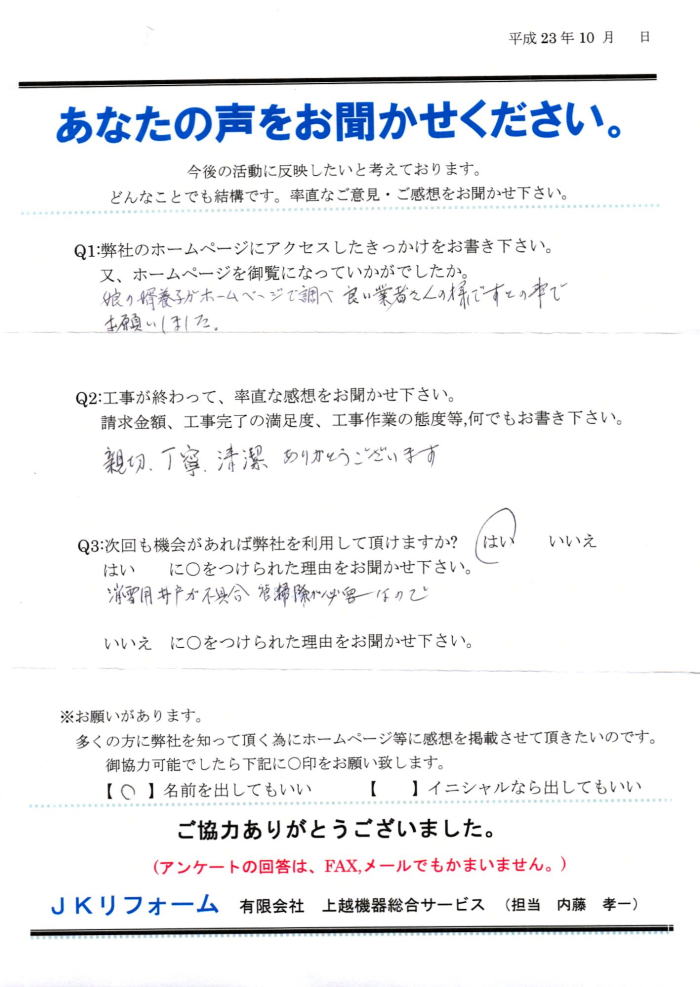 平成23年10月　日
あなたの声をお聞かせください。
今後の活動に反映したいと考えております。
どんなことでも結構です。率直なご意見・ご感想をお聞かせ下さい。
Q1:弊社のホームページにアクセスしたきっかけをお書き下さい。
又、ホームページを御覧になっていかがでしたか。
娘の婿養子がホームページで調べ 良い業者さんの様ですとの事で
お願いしました。
Q2:工事が終わって、率直な感想をお聞かせ下さい。
請求金額、工事完了の満足度、工事作業の態度等,何でもお書き下さい。
親切、丁寧、清潔 ありがとうございます
Q3:次回も機会があれば弊社を利用して頂けますか? はい　いいえ
はい　に○をつけられた理由をお聞かせ下さい。
消雪用井戸が不具合 管掃除が必要なので
いいえ　に○をつけられた理由をお聞かせ下さい。
※お願いがあります。
多くの方に弊社を知って頂く為にホームページ等に感想を掲載させて頂きたいのです。
御協力可能でしたら下記に○印をお願い致します。
【 ○ 】名前を出してもいい　【　】イニシャルなら出してもいい
ご協力ありがとうございました。
（アンケートの回答は、FAX,メールでもかまいません。）
ＪＫリフォーム　有限会社　上越機器総合サービス　（担当　内藤　孝一）